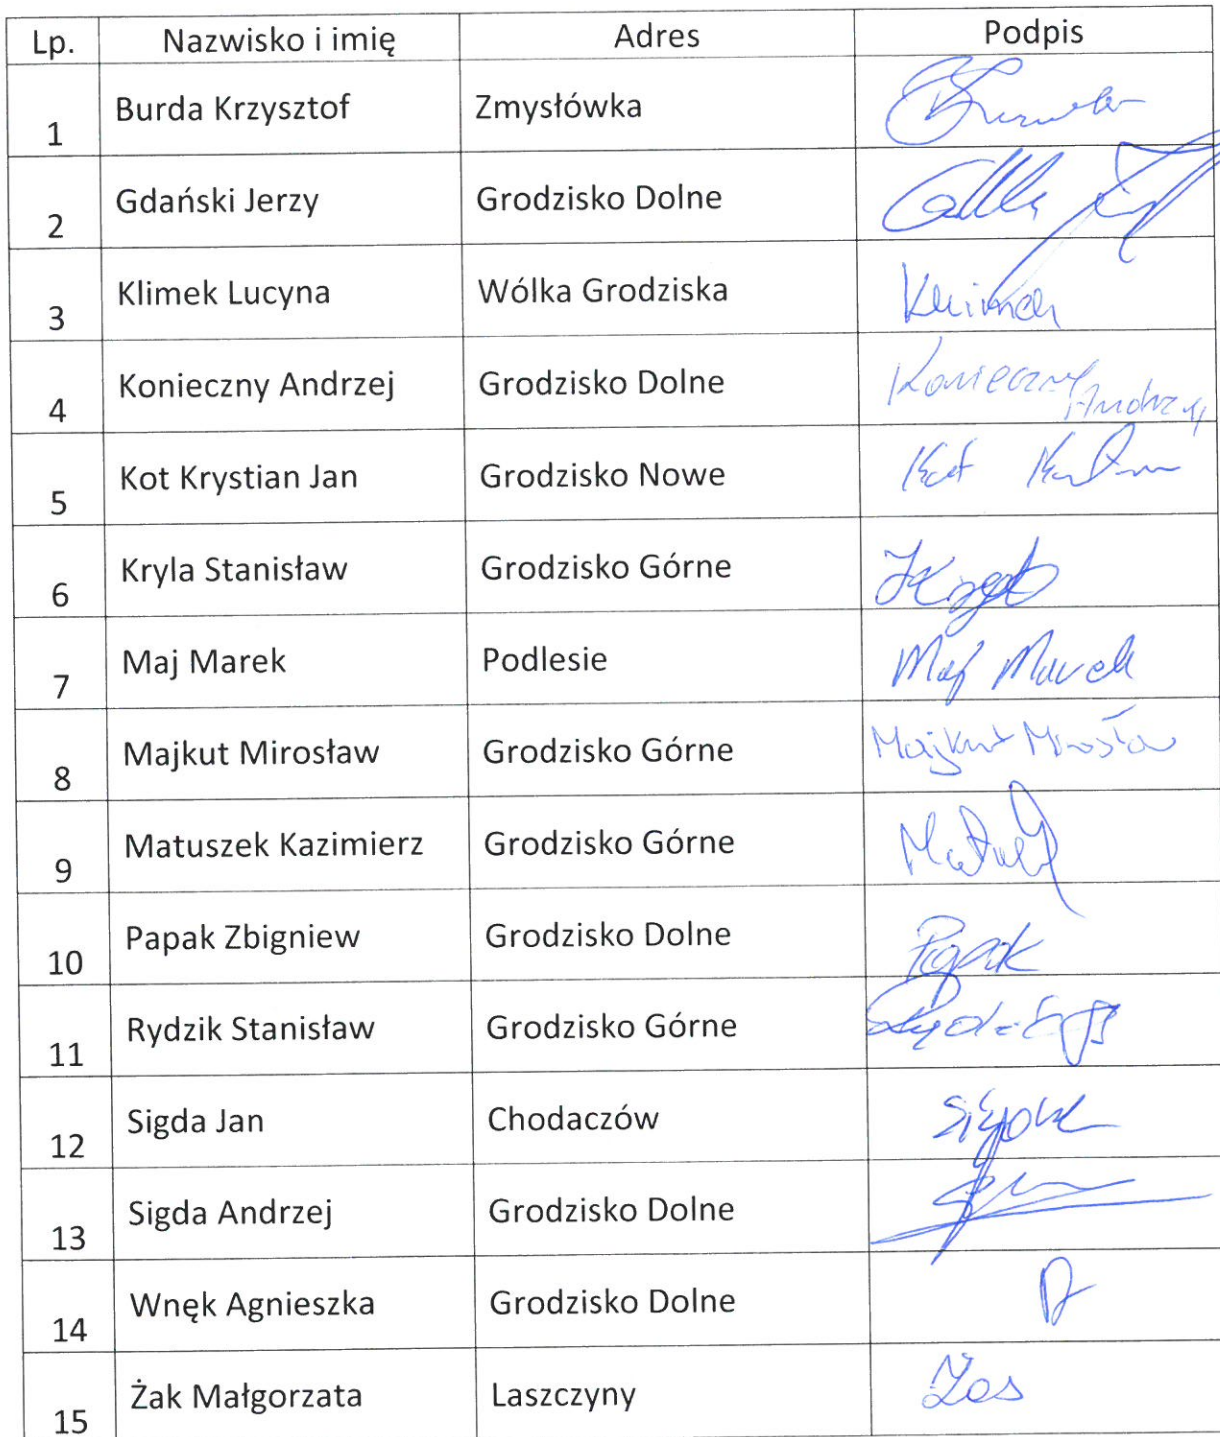 Lp. Nazwisko i imię Adres Podpis
1 Burda Krzysztof Zmysłówka
2 Gdański Jerzy Grodzisko Dolne
3 Klimek Lucyna Wólka Grodziska Klimek
4 Konieczny Andrzej Grodzisko Dolne Konieczny Andrzej
5 Kot Krystian Jan Grodzisko Nowe Kot
6 Kryla Stanisław Grodzisko Górne
7 Maj Marek Podlesie Maj Marek
8 Majkut Mirosław Grodzisko Górne Majkut Mirosław
9 Matuszek Kazimierz Grodzisko Górne
10 Papak Zbigniew Grodzisko Dolne Papak
11 Rydzik Stanisław Grodzisko Górne
12 Sigda Jan Chodaczów
13 Sigda Andrzej Grodzisko Dolne
14 Wnęk Agnieszka Grodzisko Dolne
15 Żak Małgorzata Laszczyny